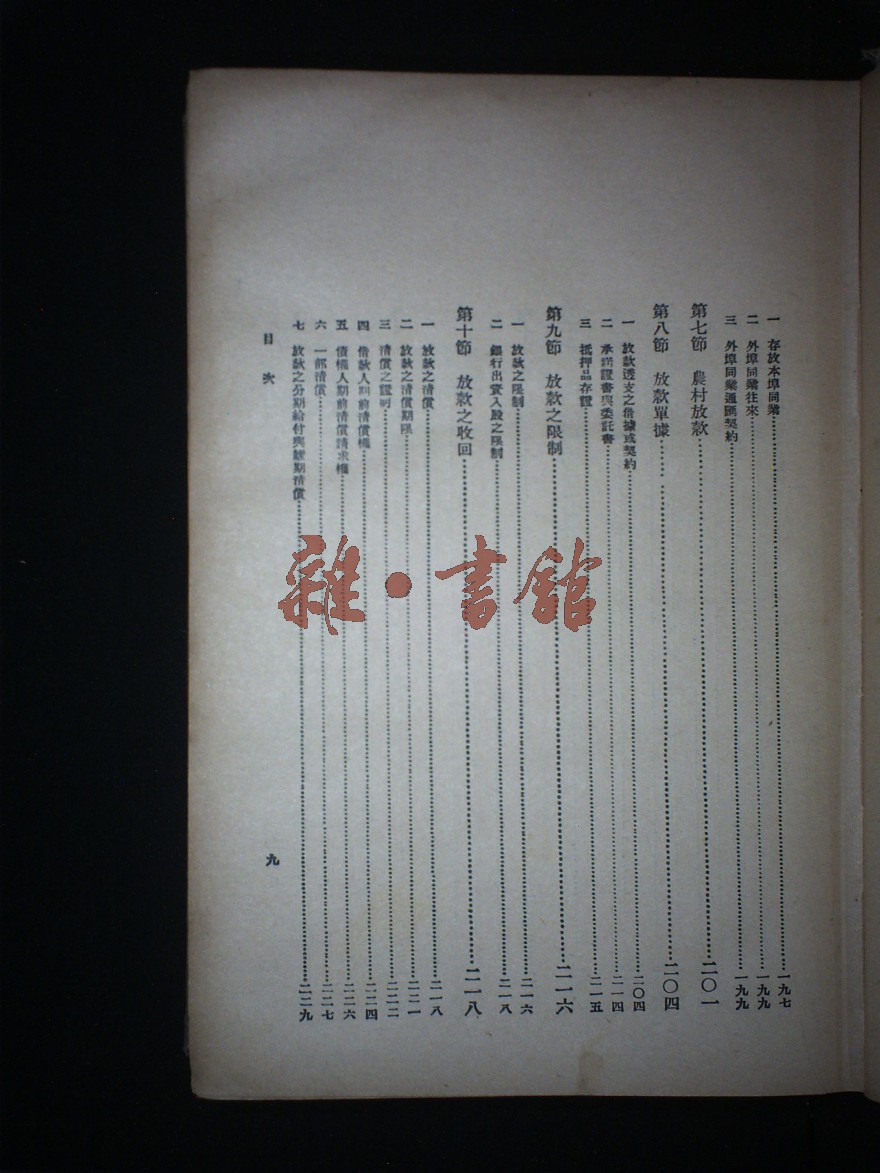 一 存放本埠同業……一九七
二 外埠同業往來……一九九
三 外埠同業通匯契約……一九九
第七節 農村放款……二〇一
第八節 放款單據……二〇四
一 放款透支之借據或契約……二〇四
二 承諾證書與委託書……二一四
三 抵押品存證……二一五
第九節 放款之限制……二一六
一 放款之限制……二一六
二 銀行出資入股之限制……二一八
第十節 放款之收回……二一八
一 放款之清償……二一八
二 放款之清償期限……二二一
三 清償之證明……二二二
四 借款人期前清償權……二二四
五 債權人期前清償請求權……二二六
六 一部清償……二二七
七 放款之分期給付與緩期清償……二二九
目次
九
雜·書館